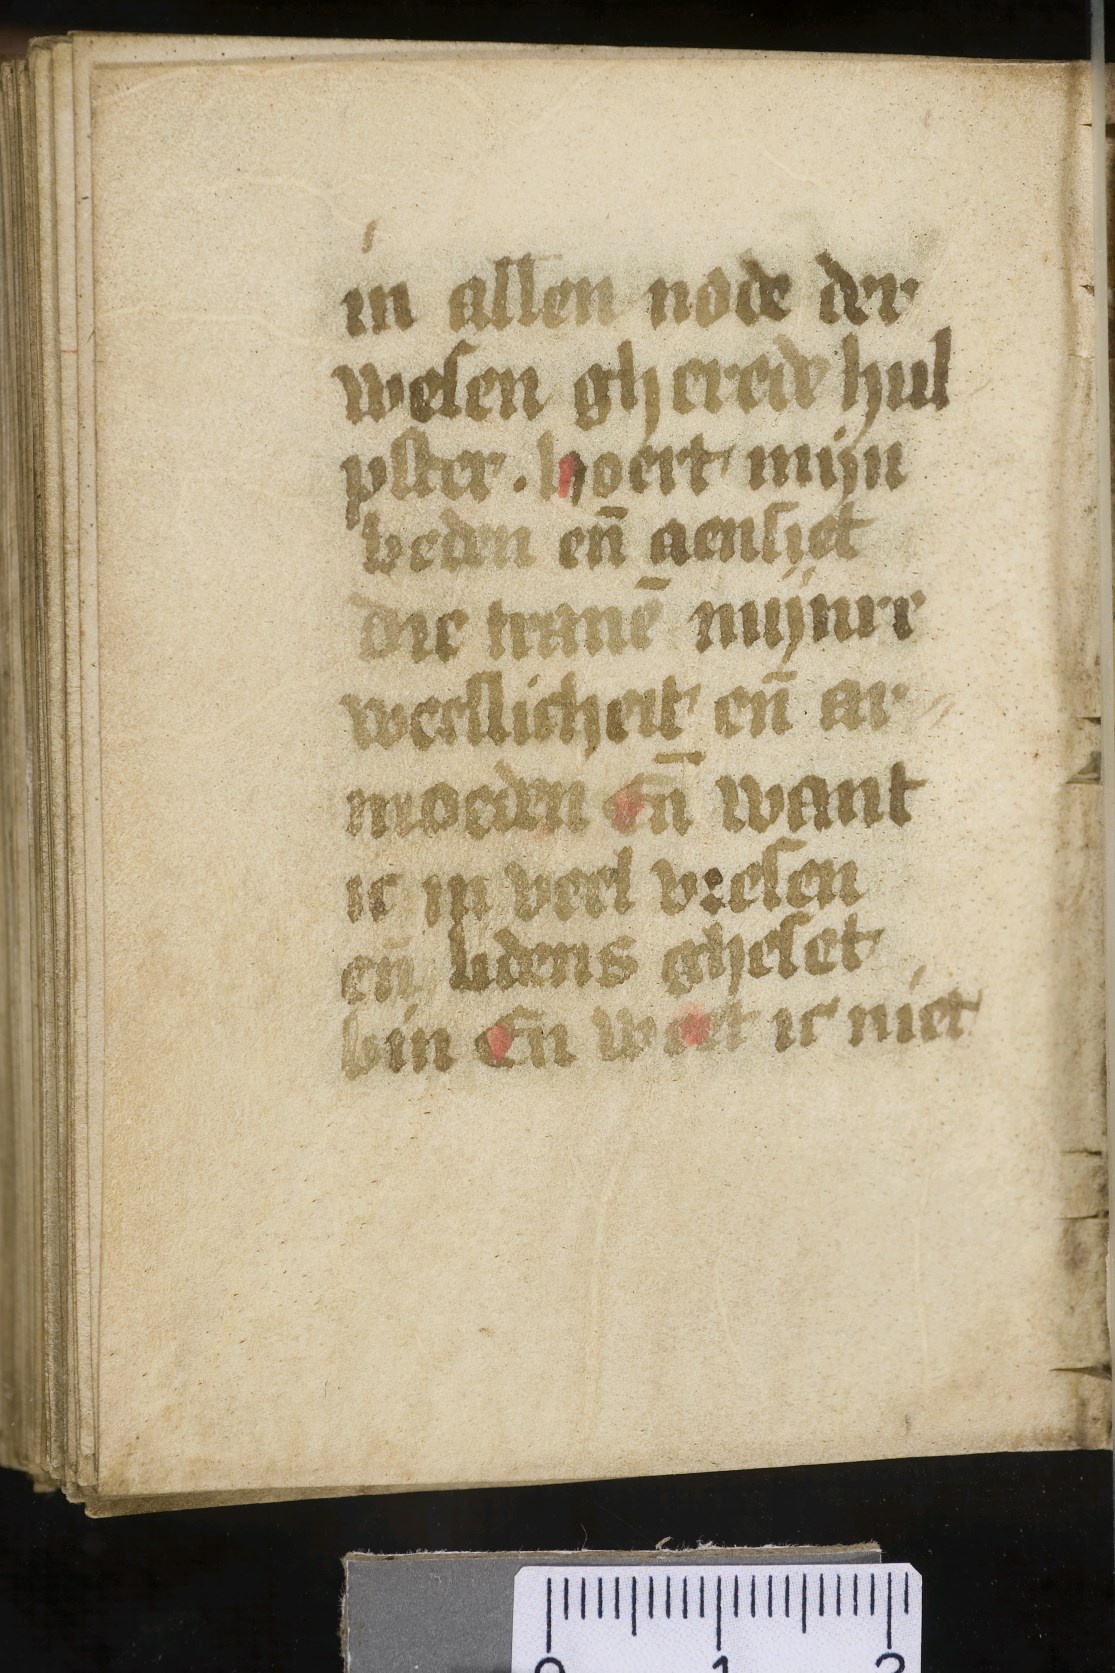 in allen node der
wesen gherede hul
pster. hoert mijn
beden en̄ aensiet
die tranē mijnre
weslicheit en̄ ar
moeden En̄ want
ic in veel vresen
en̄ lidens gheset
bin En̄ weet ic niet
0 1 2